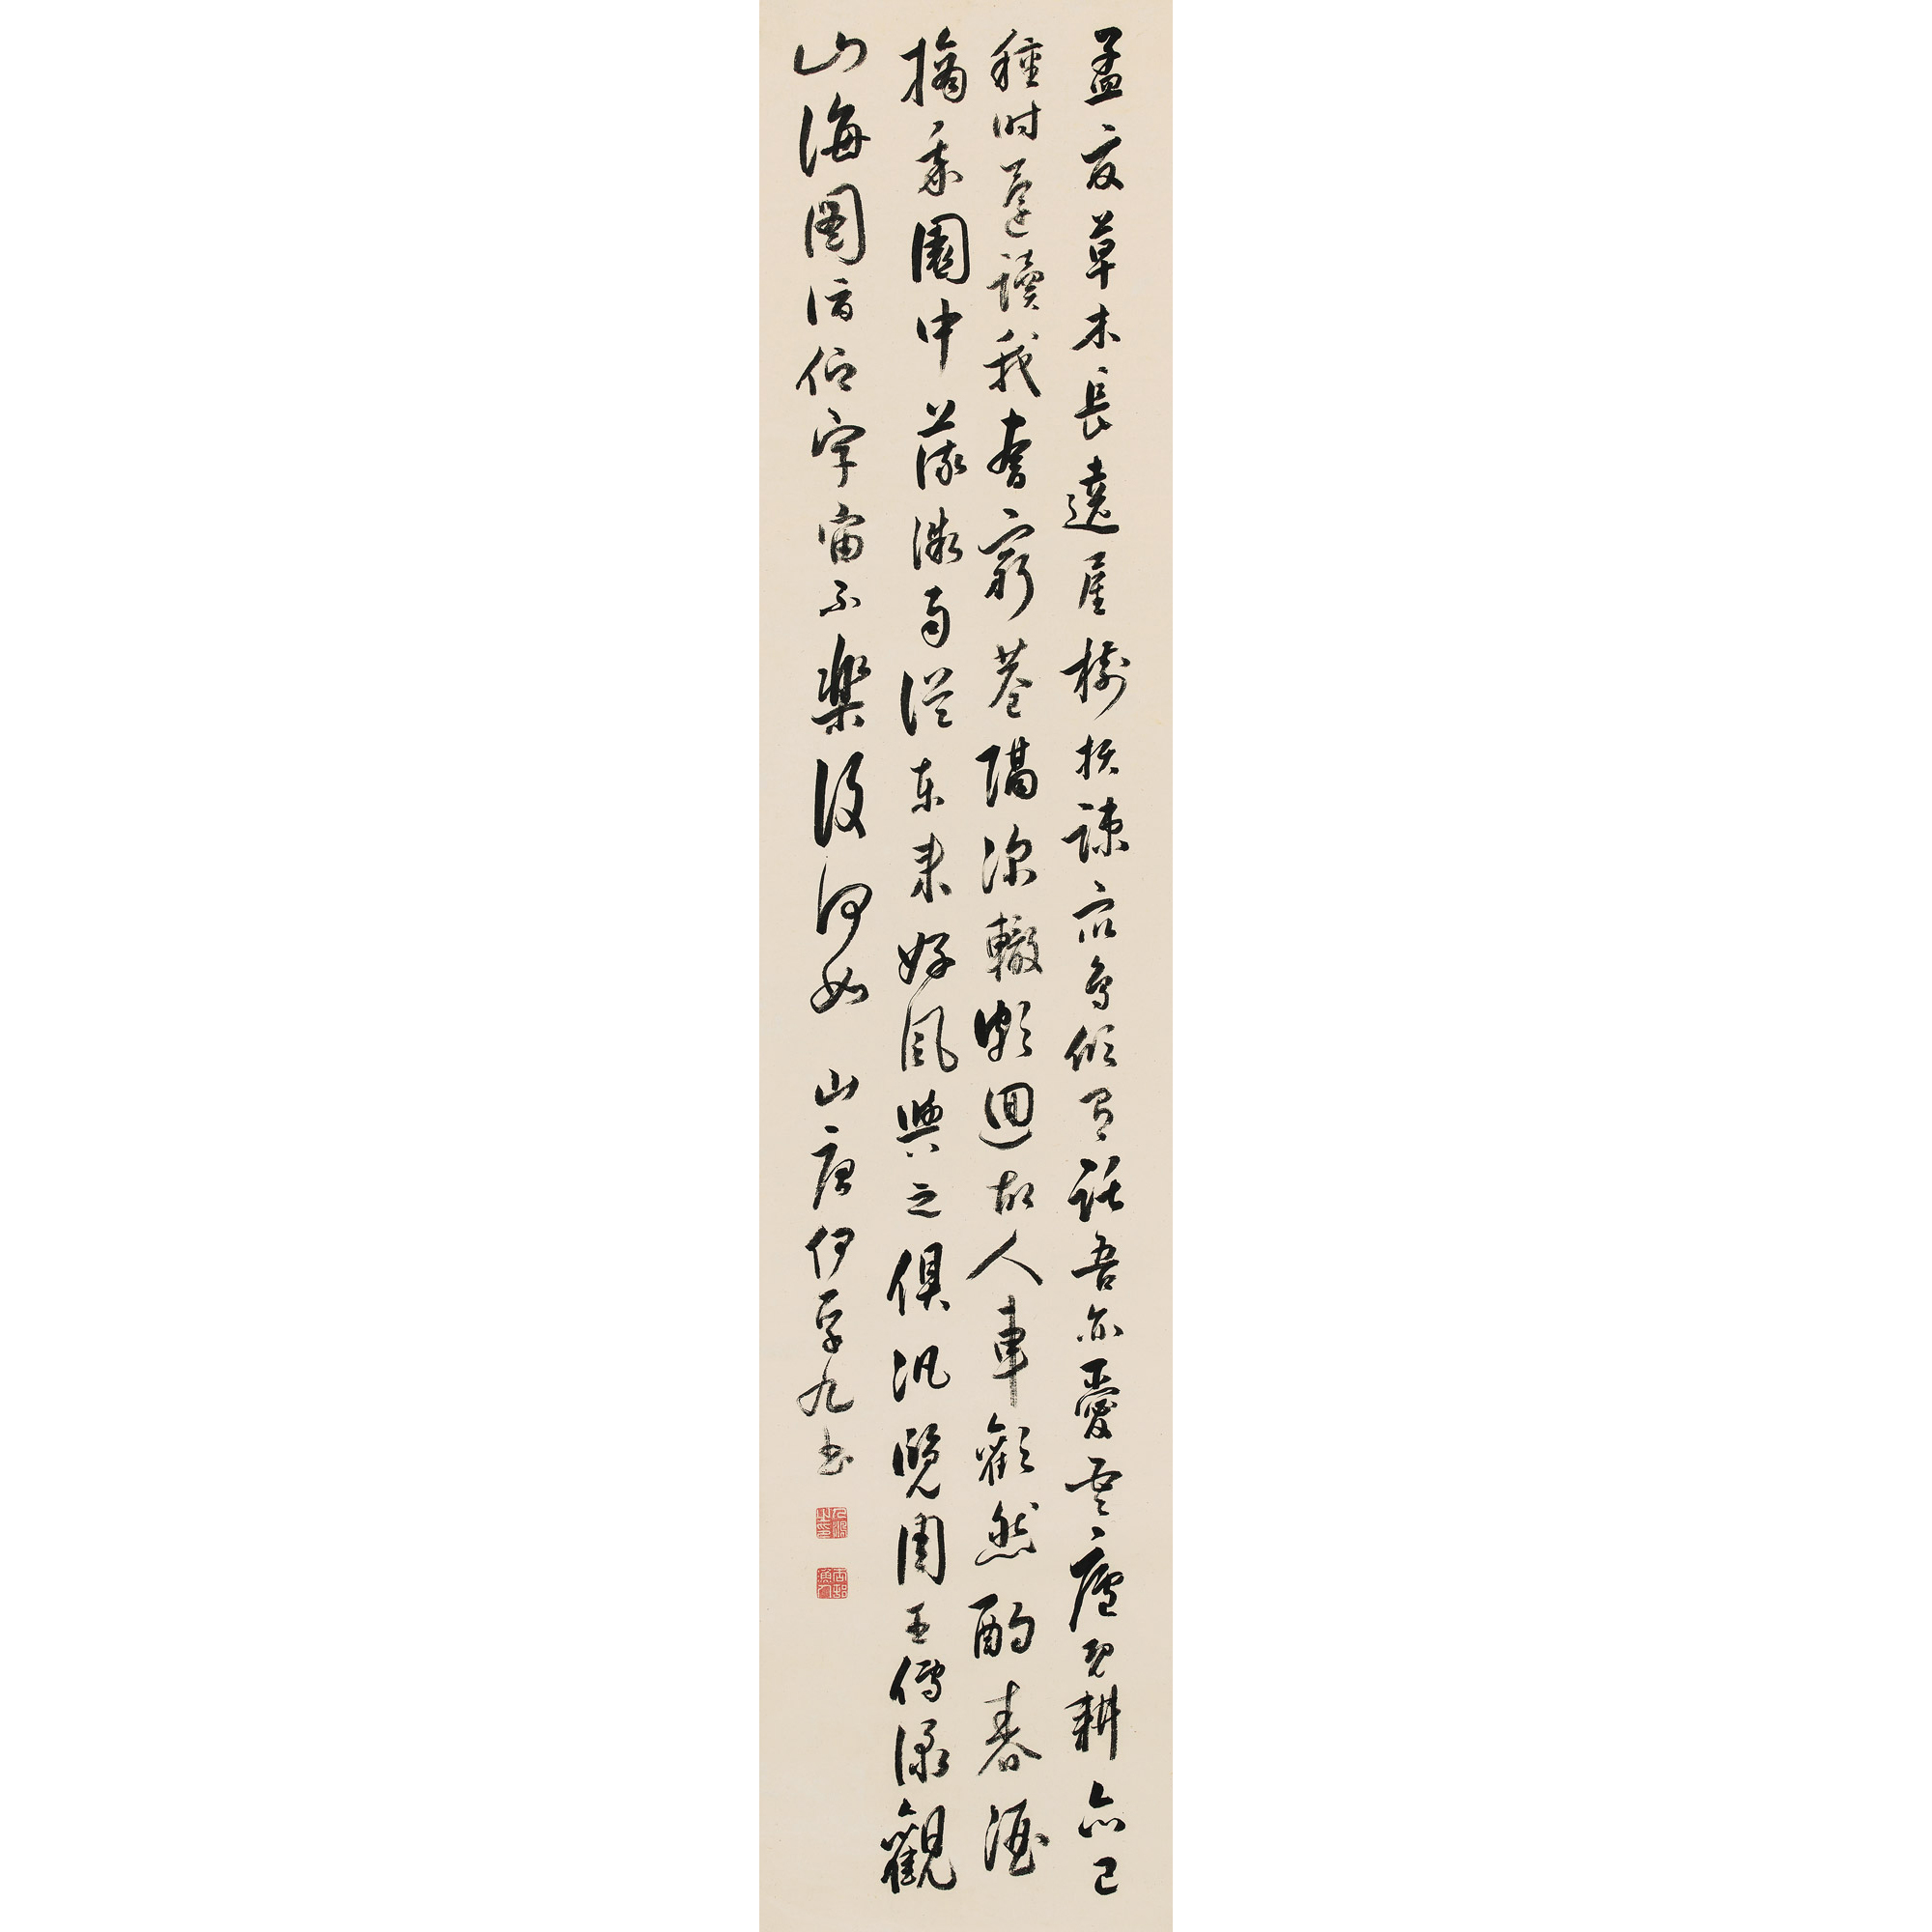 孟夏草木長遶屋樹扶疎衆鳥欣有託吾亦愛吾廬既耕亦已
種時還讀我書窮巷隔深轍頗迴故人車歡然酌春酒
摘我園中蔬微雨從東來好風與之俱汎覽周王傳流觀
山海圖俯仰宇宙不樂復何如 山唐伊孚九書